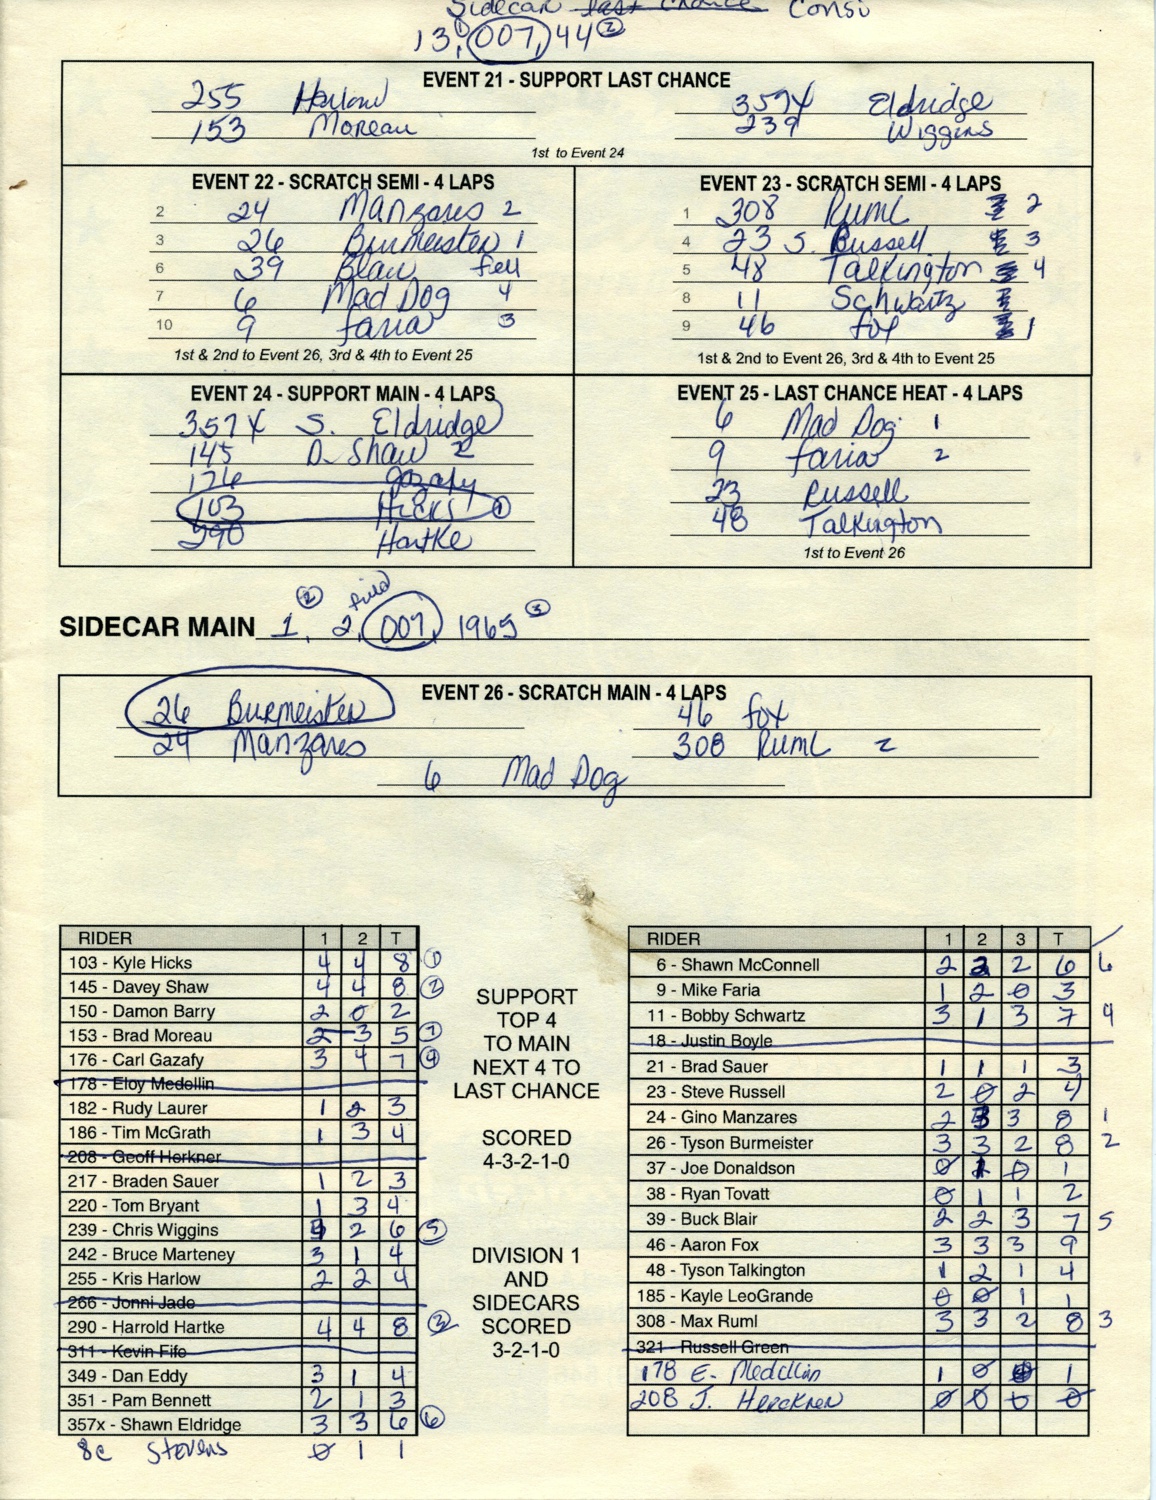 Sidecar last chance Consi
13, ① 007, 44 ②
EVENT 21 - SUPPORT LAST CHANCE
255 Harlow 357X Eldridge
153 Moreau 239 Wiggins
1st to Event 24
EVENT 22 - SCRATCH SEMI - 4 LAPS
2 24 Manzares 2
3 26 Burmeister 1
6 39 Blair fell
7 6 Mad Dog 4
10 9 Faria 3
1st & 2nd to Event 26, 3rd & 4th to Event 25
EVENT 23 - SCRATCH SEMI - 4 LAPS
1 308 Ruml 2
4 23 S. Russell 3
5 48 Talkington 4
8 11 Schwartz
9 46 Fox 1
1st & 2nd to Event 26, 3rd & 4th to Event 25
EVENT 24 - SUPPORT MAIN - 4 LAPS
357X S. Eldridge
145 D. Shaw 2
176 Gazafy
103 Hicks ①
290 Hartke
EVENT 25 - LAST CHANCE HEAT - 4 LAPS
6 Mad Dog 1
9 Faria 2
23 Russell
48 Talkington
1st to Event 26
SIDECAR MAIN 1, ② 2, 007, 1965 ③
EVENT 26 - SCRATCH MAIN - 4 LAPS
26 Burmeister 46 Fox
24 Manzares 308 Ruml 2
6 Mad Dog
RIDER 1 2 T
103 - Kyle Hicks 4 4 8 ①
145 - Davey Shaw 4 4 8 ②
150 - Damon Barry 2 0 2
153 - Brad Moreau 2 3 5 ⑦
176 - Carl Gazafy 3 4 7 ④
178 - Eloy Medellin
182 - Rudy Laurer 1 2 3
186 - Tim McGrath 1 3 4
208 - Geoff Herkner
217 - Braden Sauer 1 2 3
220 - Tom Bryant 1 3 4
239 - Chris Wiggins 4 2 6 ⑤
242 - Bruce Marteney 3 1 4
255 - Kris Harlow 2 2 4
266 - Jonni Jade
290 - Harrold Hartke 4 4 8 ③
311 - Kevin Fife
349 - Dan Eddy 3 1 4
351 - Pam Bennett 2 1 3
357x - Shawn Eldridge 3 3 6 ⑥
8c Stevens 0 1 1
SUPPORT
TOP 4
TO MAIN
NEXT 4 TO
LAST CHANCE
SCORED
4-3-2-1-0
DIVISION 1
AND
SIDECARS
SCORED
3-2-1-0
RIDER 1 2 3 T
6 - Shawn McConnell 2 2 2 6 6
9 - Mike Faria 1 2 0 3
11 - Bobby Schwartz 3 1 3 7 4
18 - Justin Boyle
21 - Brad Sauer 1 1 1 3
23 - Steve Russell 2 0 2 4
24 - Gino Manzares 2 3 3 8 1
26 - Tyson Burmeister 3 3 2 8 2
37 - Joe Donaldson 0 1 0 1
38 - Ryan Tovatt 0 1 1 2
39 - Buck Blair 2 2 3 7 5
46 - Aaron Fox 3 3 3 9
48 - Tyson Talkington 1 2 1 4
185 - Kayle LeoGrande 0 0 1 1
308 - Max Ruml 3 3 2 8 3
321 - Russell Green
178 E. Medellin 1 0 0 1
208 J. Herckner 0 0 0 0